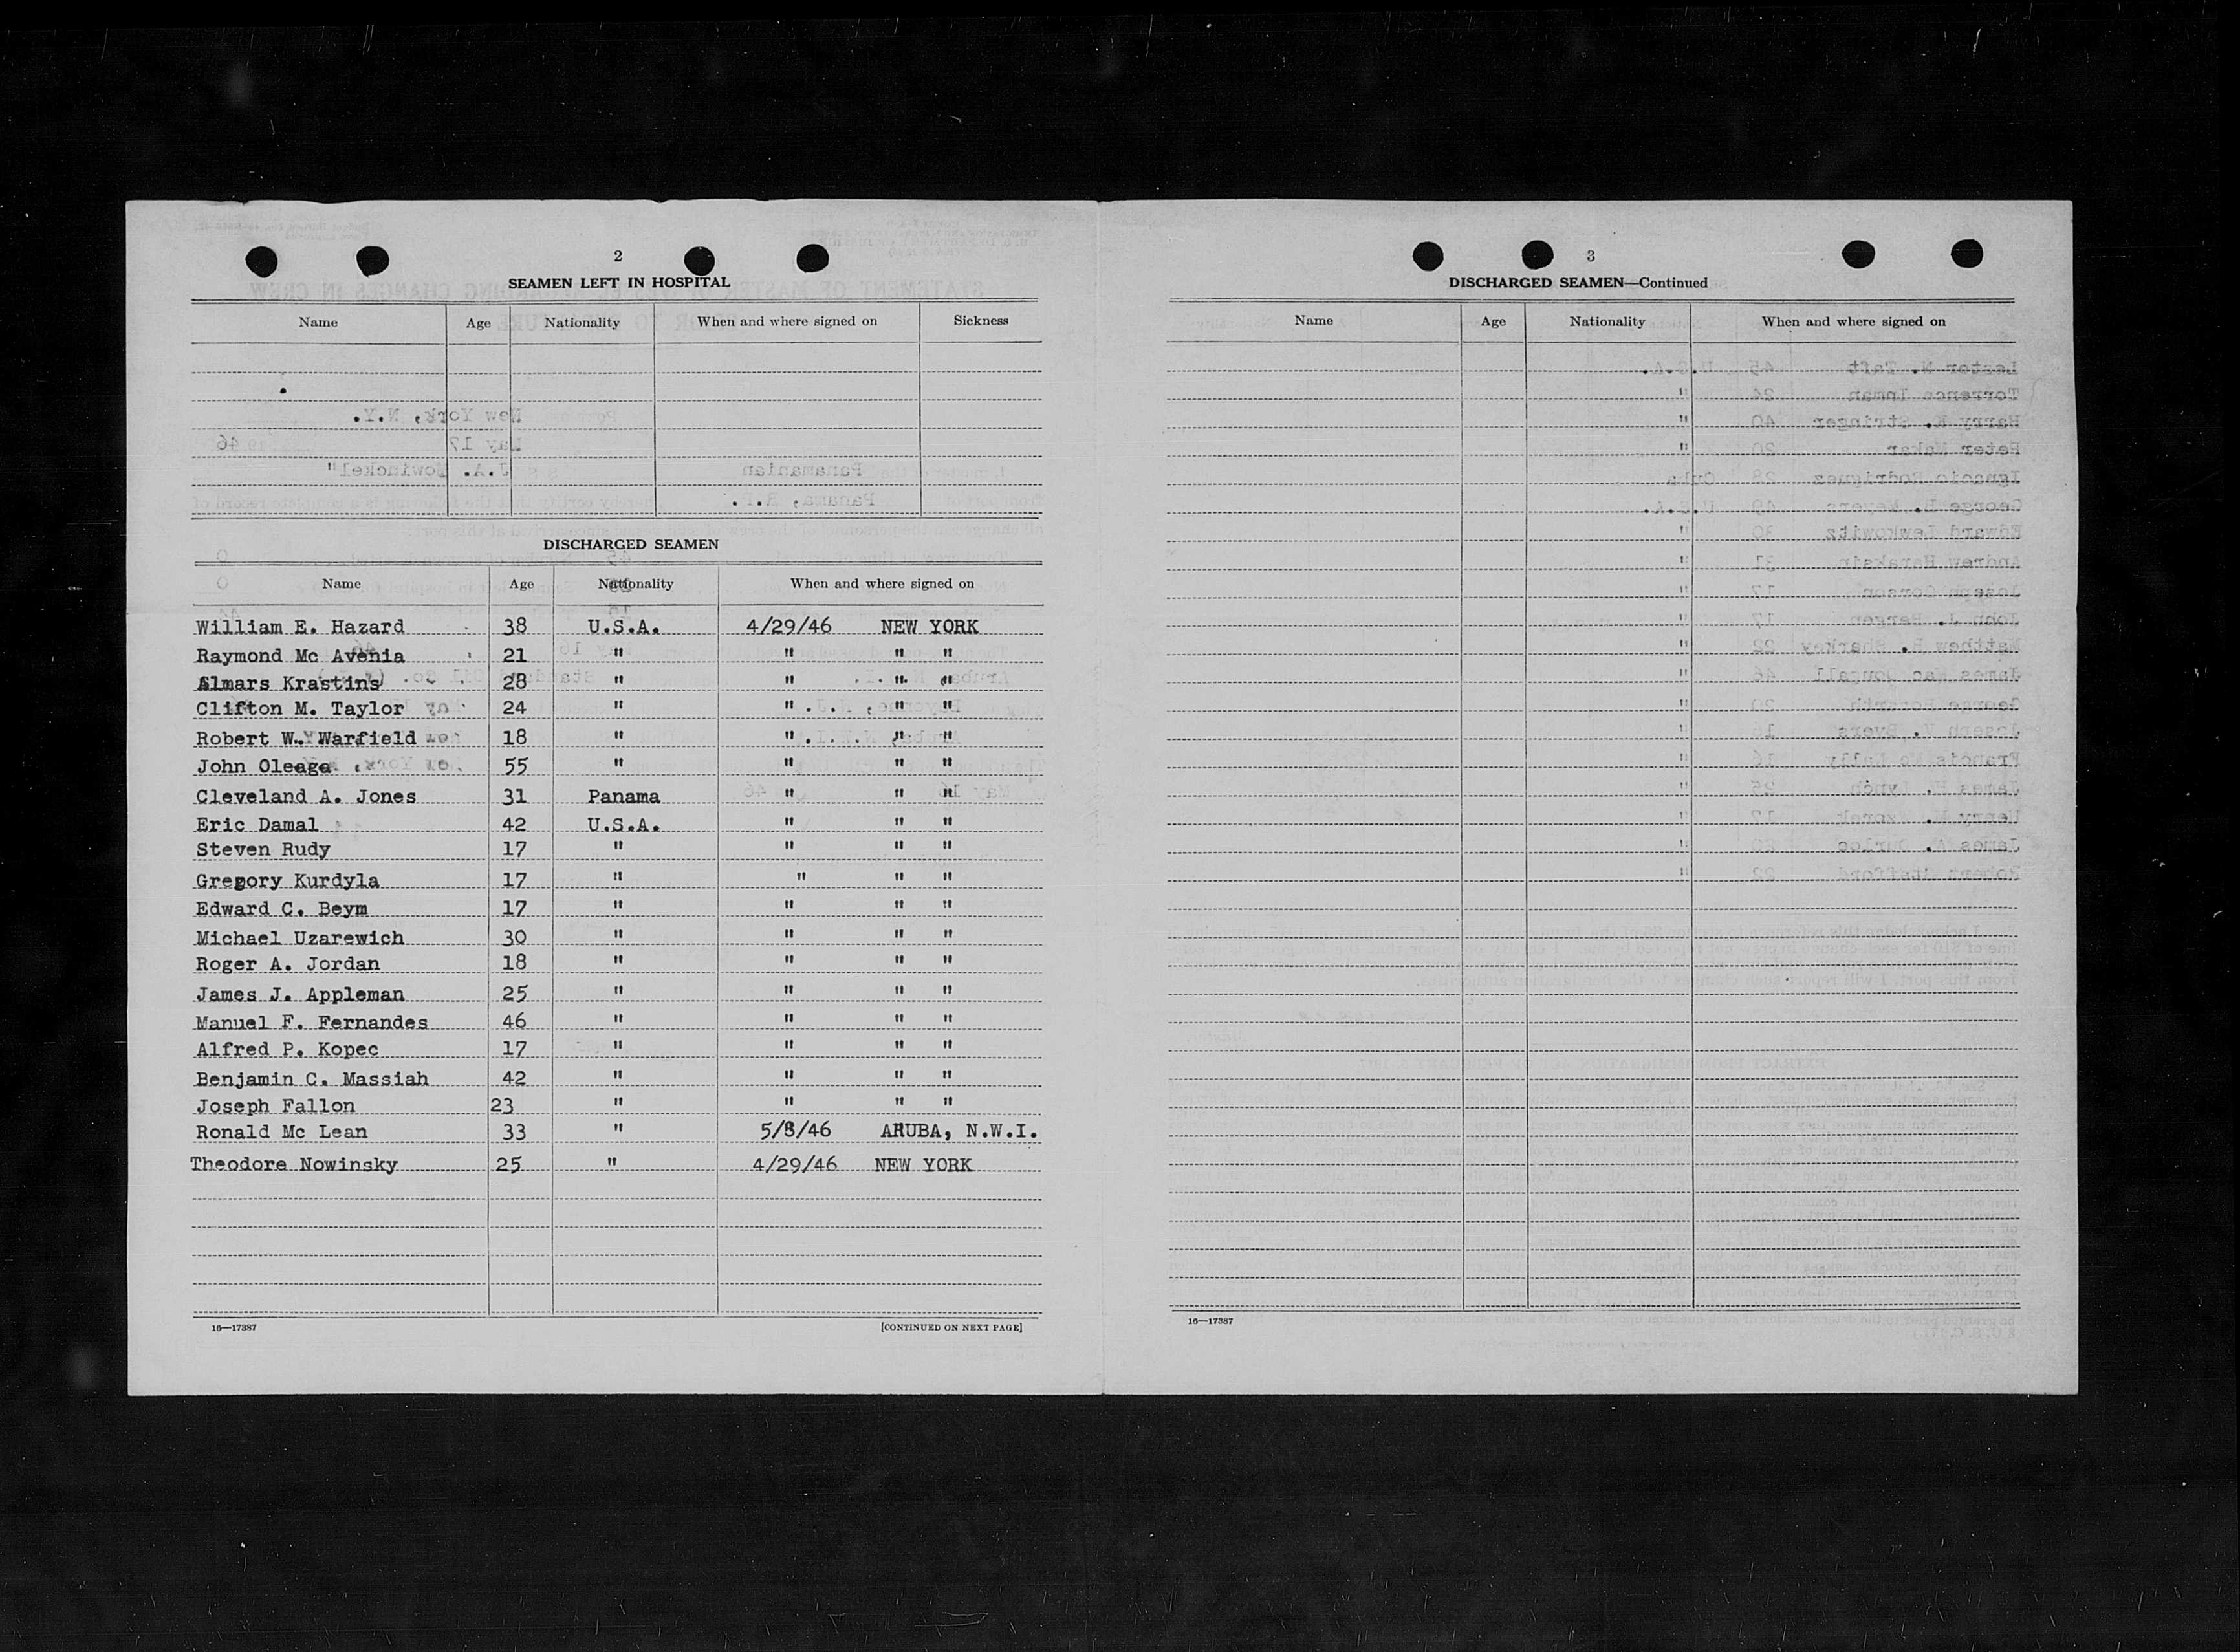 2
SEAMEN LEFT IN HOSPITAL
Name Age Nationality When and where signed on Sickness
DISCHARGED SEAMEN
Name Age Nationality When and where signed on
William E. Hazard 38 U.S.A. 4/29/46 NEW YORK
Raymond Mc Avenia 21 " " " "
Almars Krastins 28 " " " "
Clifton M. Taylor 24 " " " "
Robert W. Warfield 18 " " " "
John Oleaga 55 " " " "
Cleveland A. Jones 31 Panama " " "
Eric Damal 42 U.S.A. " " "
Steven Rudy 17 " " " "
Gregory Kurdyla 17 " " " "
Edward C. Beym 17 " " " "
Michael Uzarewich 30 " " " "
Roger A. Jordan 18 " " " "
James J. Appleman 25 " " " "
Manuel F. Fernandes 46 " " " "
Alfred P. Kopec 17 " " " "
Benjamin C. Massiah 42 " " " "
Joseph Fallon 23 " " " "
Ronald Mc Lean 33 " 5/8/46 ARUBA, N.W.I.
Theodore Nowinsky 25 " 4/29/46 NEW YORK
16—17387 [CONTINUED ON NEXT PAGE]
3
DISCHARGED SEAMEN—Continued
Name Age Nationality When and where signed on
16—17387